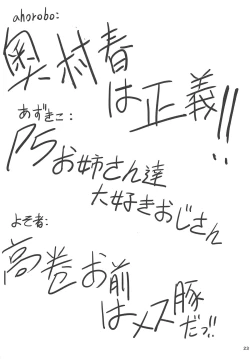 ahorobo:
奥村春
は正義!!
あずきこ:
P5お姉さん達
大好きおじさん
よそ者:
高巻お前
はメス豚
だっ!!